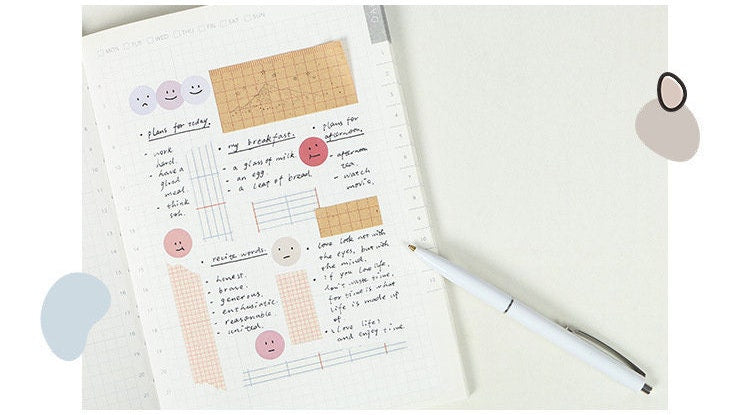 MON TUE WED THU FRI SAT SUN
• plans for today.
- work
hard.
- have a
good
meal.
- think
• my breakfast.
- a glass of milk
- an egg.
- a leaf of bread
• plans for
afternoon.
- afternoon
tea.
- watch
movie.
• recite words.
- honest.
- brave.
- generous.
- enthusiatic.
- reasonable.
- united.
• Love look not with
the eyes, but with
the mind.
• if you love life,
don't waste time,
for time is what
life is made up
of
• Love life!
and enjoy time.